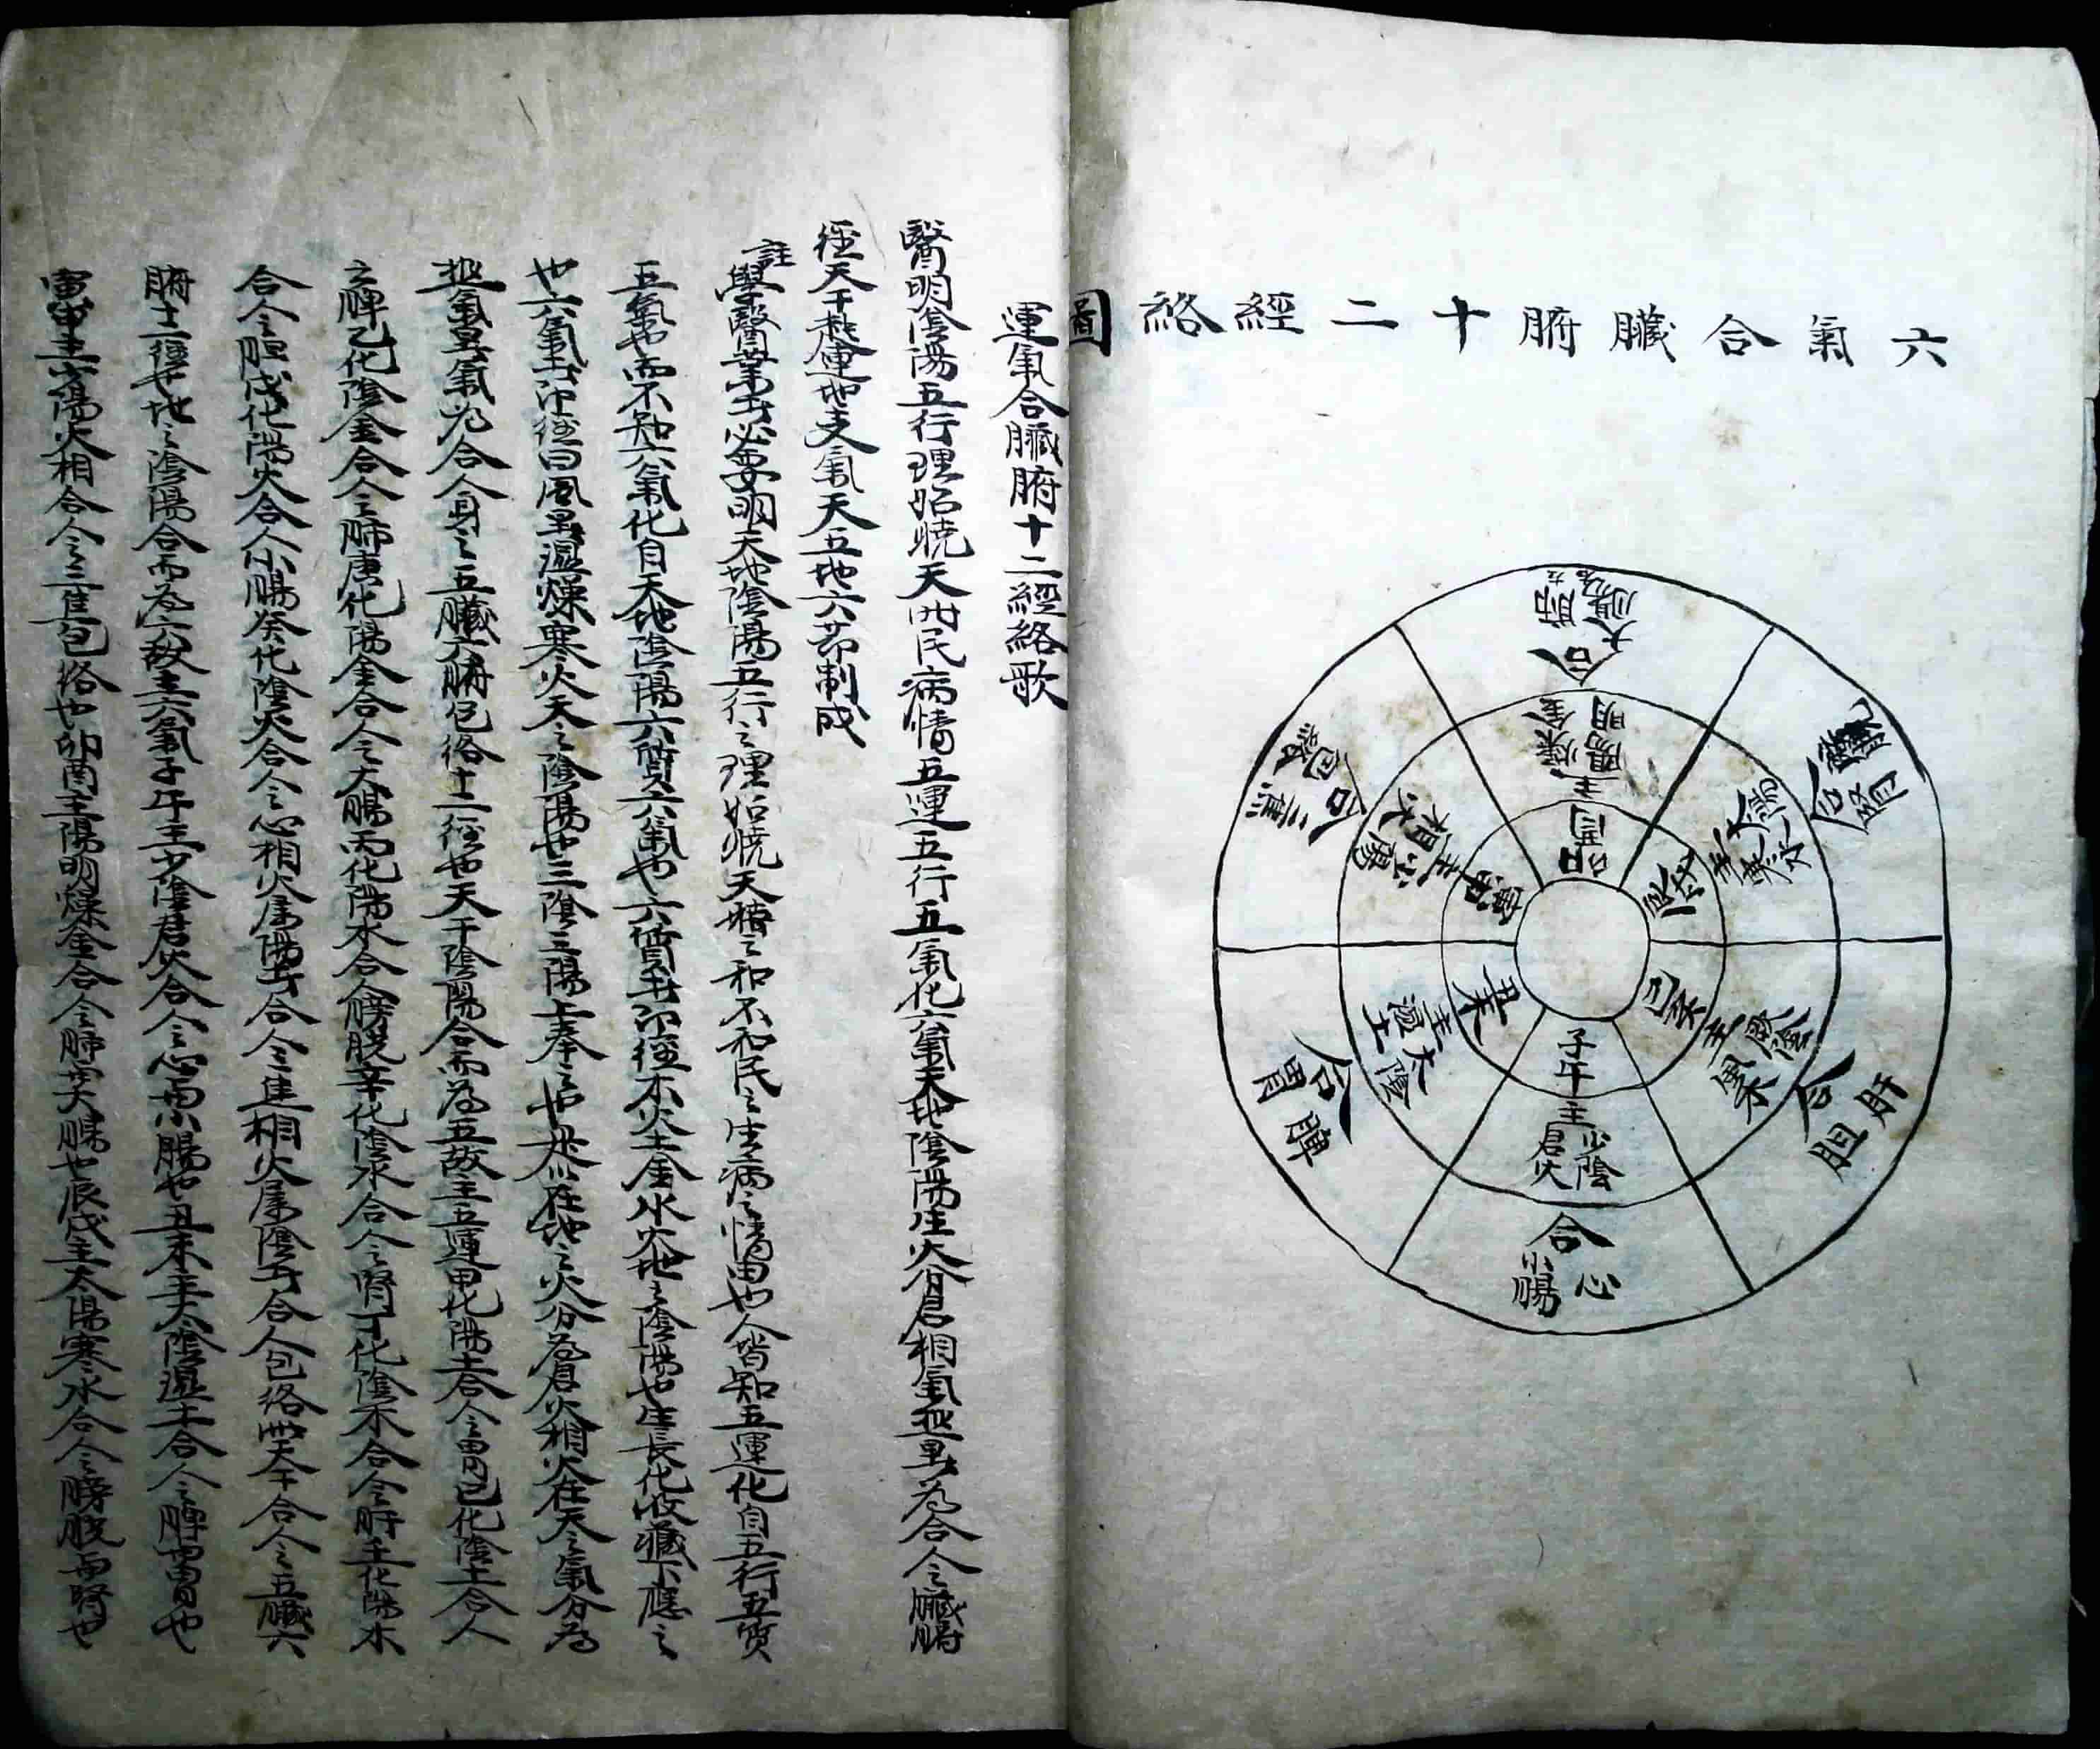 六氣合臟腑十二經絡圖
卯酉
主
陽明
燥金
合
大腸
肺
辰戌
主
太陽
寒水
合
膀胱
腎
巳亥
主
厥陰
風木
合
肝
胆
子午
主
少陰
君火
合
心
小腸
丑未
主
太陰
濕土
合
脾
胃
寅申
主
少陽
相火
合
三焦
包絡
運氣合臟腑十二經絡歌
醫明陰陽五行理始曉天時民病情五運五行五氣化六氣天地陰陽生火分君相氣熱為合人之臟腑
經天干起運地支氣天五地六節制成
註
學醫業者必要明天地陰陽五行之理始曉天時之和不和民之生病之情由也人皆知五運化自五行五質
五氣也而不知六氣化自天地陰陽六質六氣也六質者即經木火土金水火地之陰陽也生長化收藏下應之
也六氣者即經曰風暑濕燥寒火天之陰陽也三陰三陽上奉之也是以在地之火分為君火相火在天之氣分為
熱氣暑氣為合人身之五臟六腑包絡十二經也天干陰陽合而為五故主五運甲化陽土合人之胃己化陰土合人
之脾乙化陰金合人之肺庚化陽金合人之大腸丙化陽水合人膀胱辛化陰水合人之腎丁化陰木合人之肝壬化陽木
合人之胆戊化陽火合人小腸癸化陰火合人之心相火屬陽者合人之三焦相火屬陰者合人包絡此天干合人之五臟六
腑十二經也地之陰陽合而為六故主六氣子午主少陰君火合人之心與小腸也丑未主太陰濕土合人之脾與胃也
寅申主少陽火相合人之三焦包絡也卯酉主陽明燥金合人之肺與大腸也辰戌主太陽寒水合人之膀胱與腎也